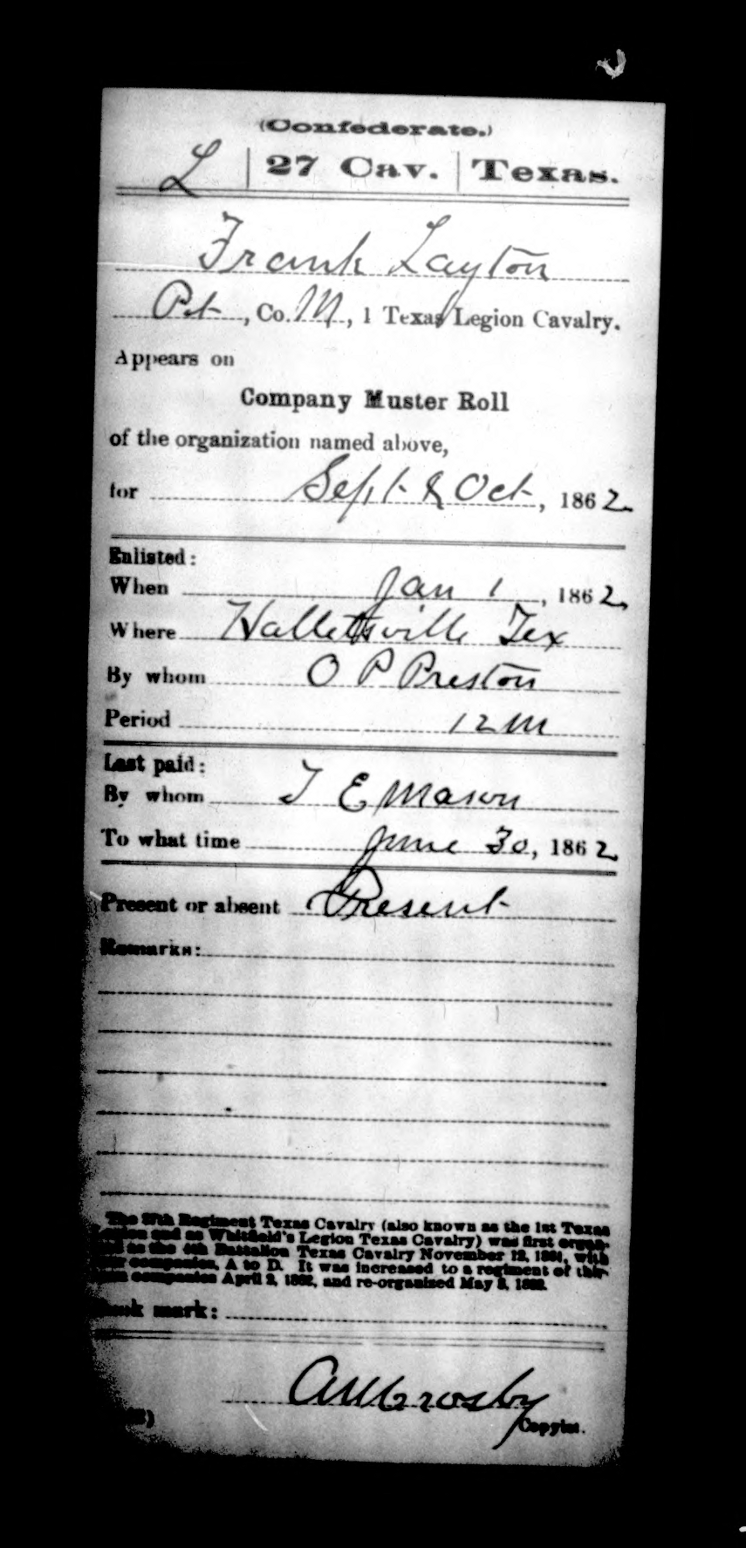 (Confederate.)
L | 27 Cav. | Texas.
Frank Layton
Pvt, Co. M, 1 Texas Legion Cavalry.
Appears on
Company Muster Roll
of the organization named above,
for Sept & Oct, 1862.
Enlisted:
When Jan 1, 1862,
Where Hallettsville Tex
By whom O P Preston
Period 12 M
Last paid:
By whom T E Mason
To what time June 30, 1862
Present or absent Present
Remarks:
The 27th Regiment Texas Cavalry (also known as the 1st Texas
and as Whitfield's Legion Texas Cavalry) was first organ-
as the 4th Battalion Texas Cavalry November 12, 1861, with
companies, A to D. It was increased to a regiment of thir-
companies April 2, 1862, and re-organized May 8, 1862.
mark:
A M Crosby
Copyist.